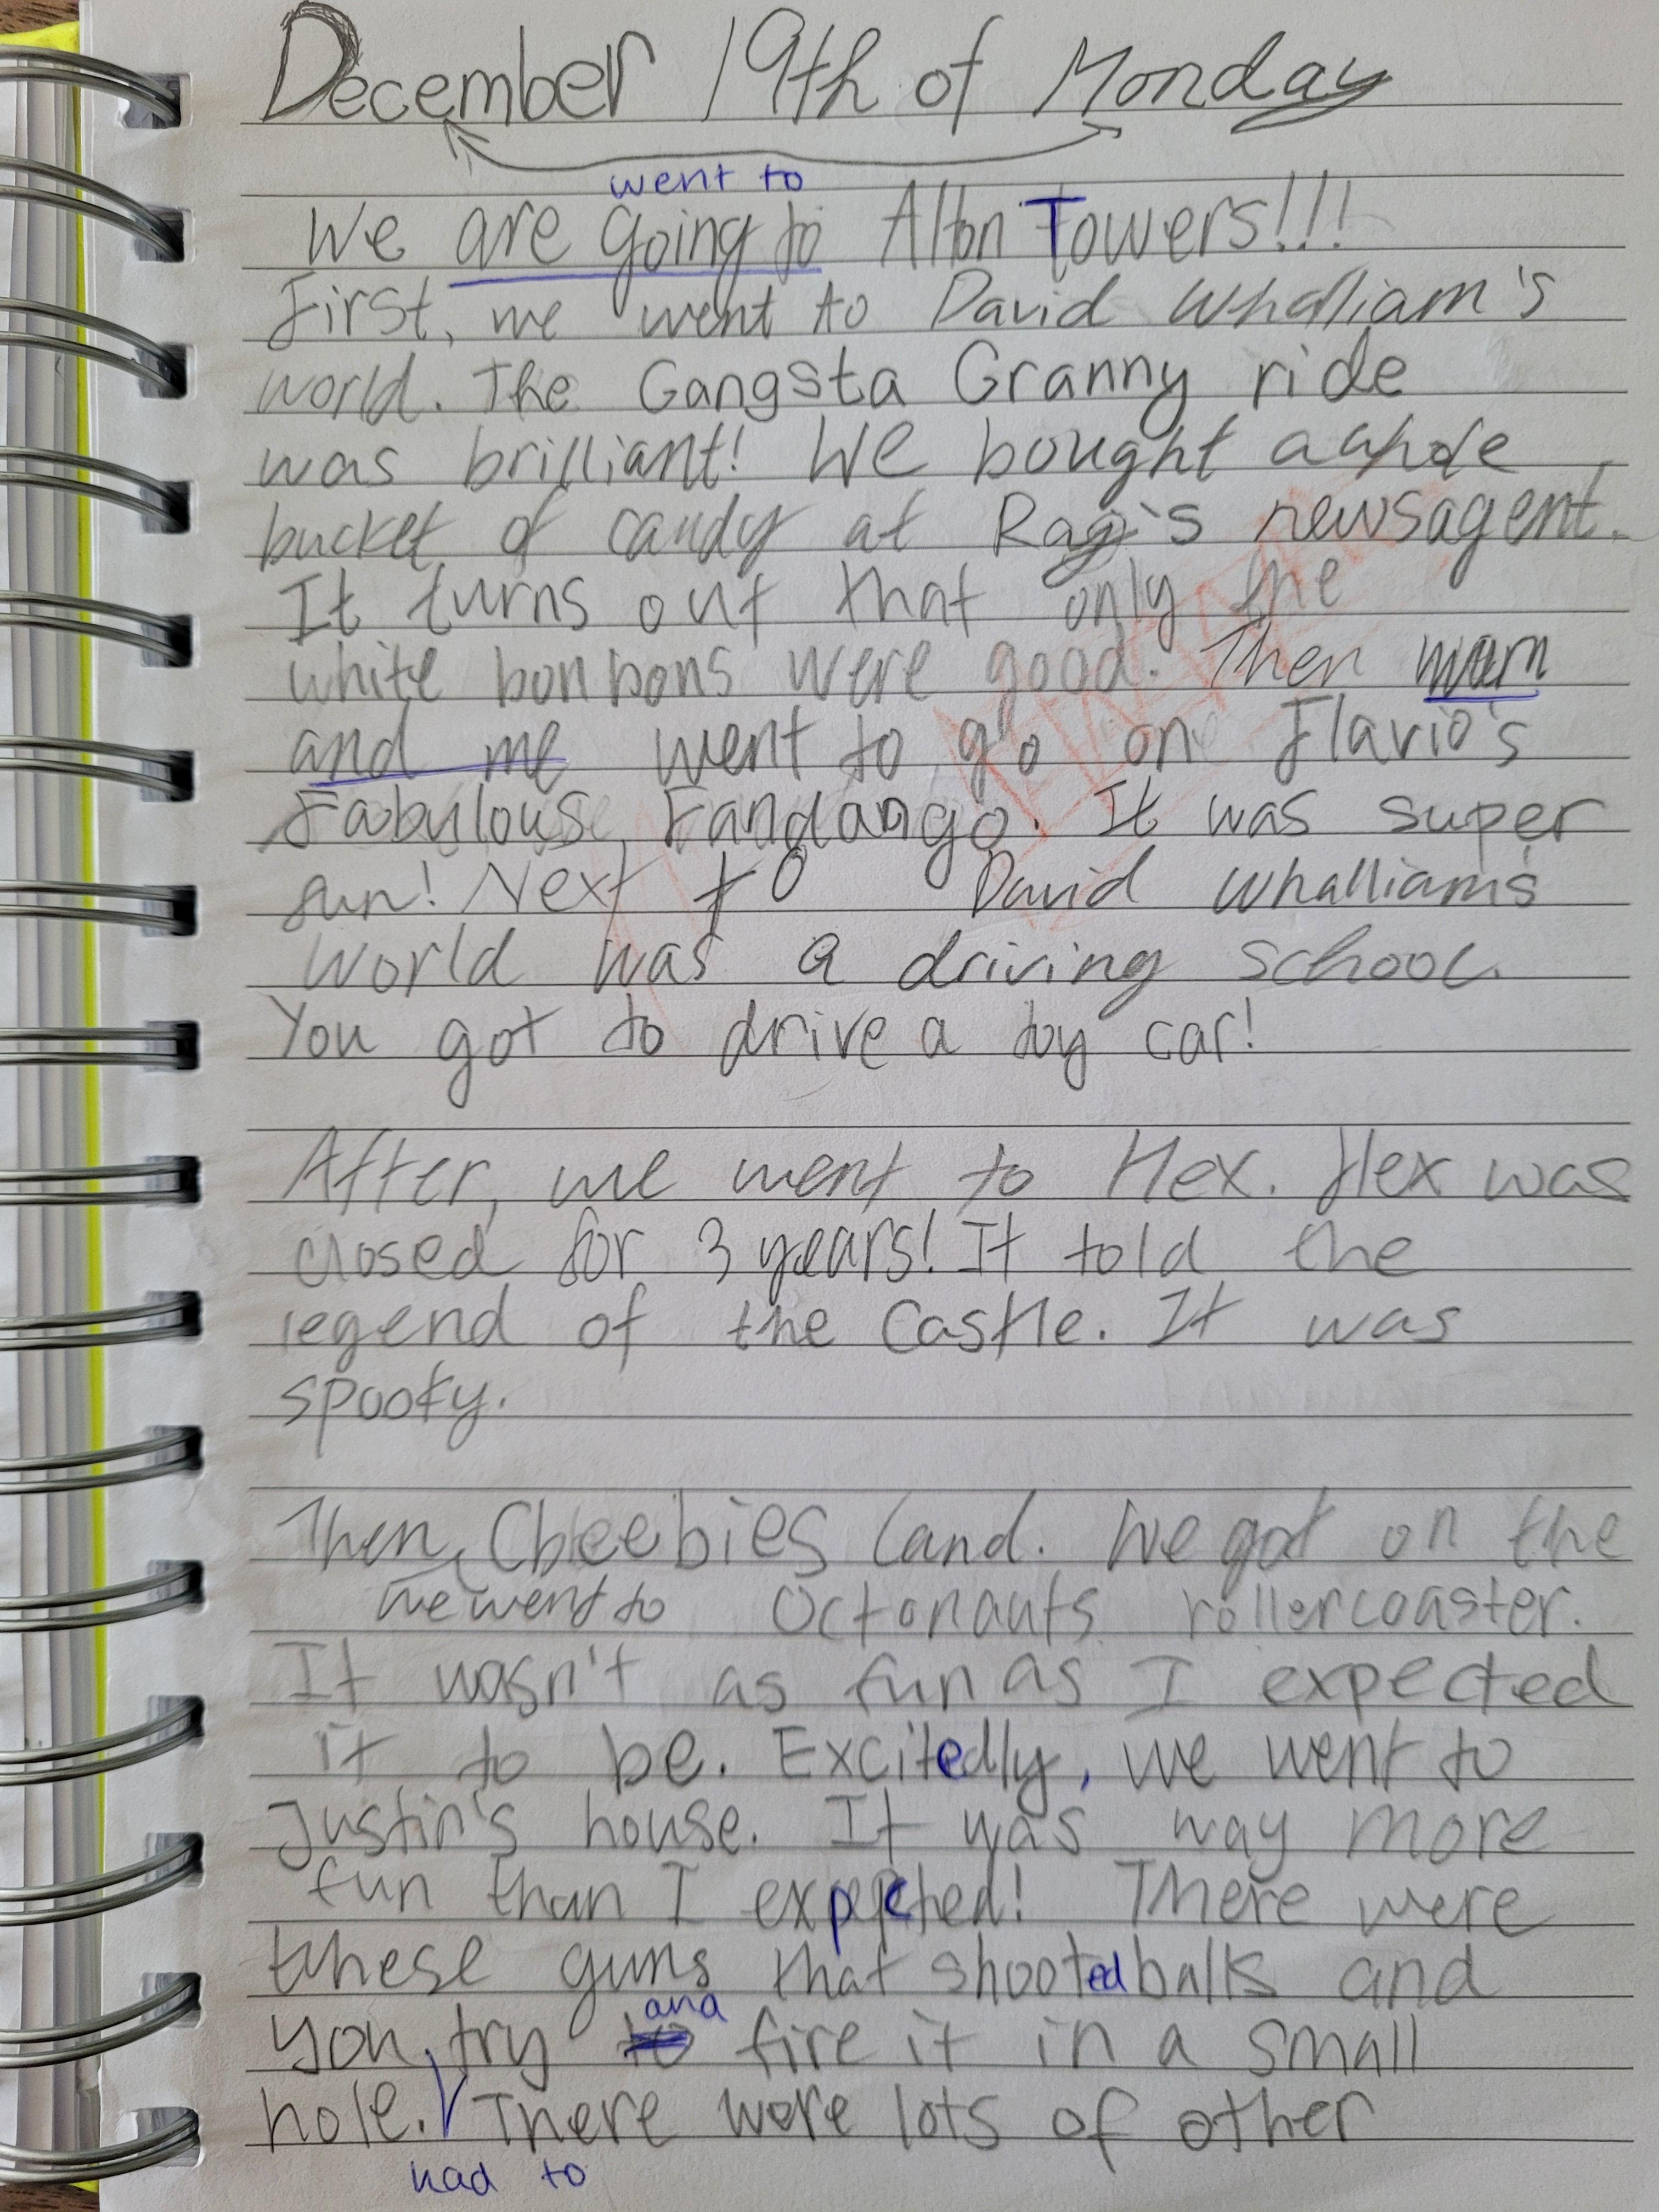 December 19th of Monday
went to
We are going to Alton Towers!!!
First, we went to David Whalliam's
world. The Gangsta Granny ride
was brilliant! We bought a whole
bucket of candy at Raj's newsagent.
It turns out that only the
white bonbons were good. Then mum
and me went to go on Flavio's
Fabulous Fandango. It was super
fun! Next to David Whalliam's
World was a driving school.
You got to drive a toy car!
After, we went to Hex. Hex was
closed for 3 years! It told the
legend of the Castle. It was
spooky.
Then, Cbeebies Land. We got on the
we went to Octonauts rollercoaster.
It wasn't as fun as I expected
it to be. Excitedly, we went to
Justin's house. It was way more
fun than I expected! There were
these guns that shooted balls and
and
you try to fire it in a small
hole. There were lots of other
had to